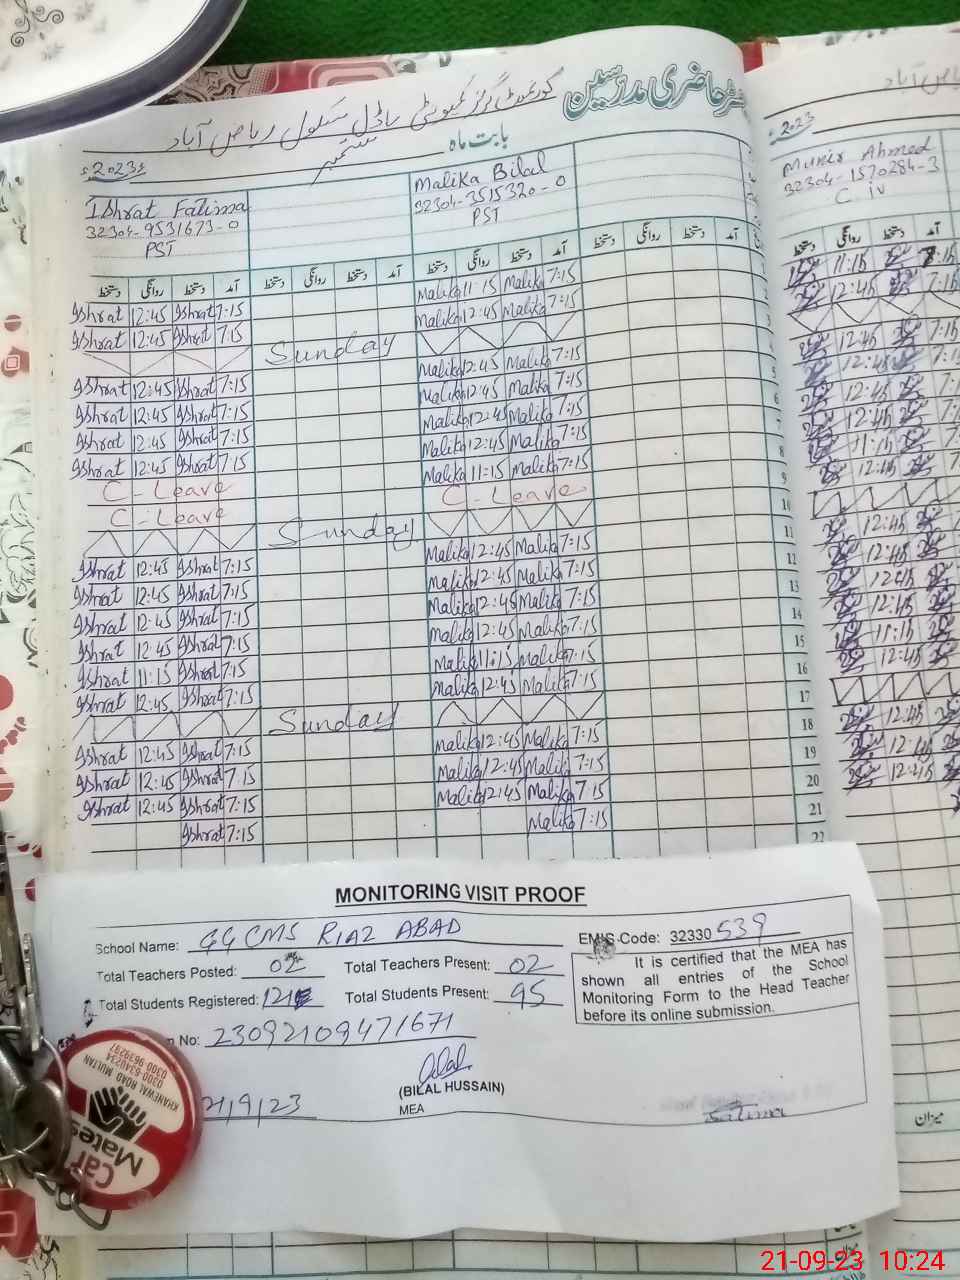 رجسٹر حاضری مدرسین
گورنمنٹ گرلز کمیونٹی ماڈل سکول ریاض آباد
بابت ماہ ستمبر
2023ء
Ishrat Fatima
32304-9531673-0
PST
Malika Bilal
32304-3515320-0
PST
2023ء
Munir Ahmed
32304-1570284-3
C iv
دستخط روانگی دستخط آمد دستخط روانگی دستخط آمد دستخط روانگی دستخط آمد دستخط روانگی دستخط آمد
دستخط روانگی دستخط
Ishrat 12:45 Ishrat 7:15 Malika 11:15 Malika 7:15 11:15 7:15
Ishrat 12:45 Ishrat 7:15 Malika 12:45 Malika 7:15 2 12:45 7:15
Sunday 3
Ishrat 12:45 Ishrat 7:15 Malika 12:45 Malika 7:15 12:45 7:15
Ishrat 12:45 Ishrat 7:15 Malika 12:45 Malika 7:15 5 12:45
Ishrat 12:45 Ishrat 7:15 Malika 12:45 Malika 7:15 6 12:45
Ishrat 12:45 Ishrat 7:15 Malika 12:45 Malika 7:15 7 12:45
C-Leave Malika 11:15 Malika 7:15 8 11:15
C-Leave C-Leave 9 12:45
Sunday 10
Ishrat 12:45 Ishrat 7:15 Malika 12:45 Malika 7:15 11 12:45
Ishrat 12:45 Ishrat 7:15 Malika 12:45 Malika 7:15 12 12:45
Ishrat 12:45 Ishrat 7:15 Malika 12:45 Malika 7:15 13 12:45
Ishrat 12:45 Ishrat 7:15 Malika 12:45 Malika 7:15 14 12:45
Ishrat 11:15 Ishrat 7:15 Malika 11:15 Malika 7:15 15 11:15
Ishrat 12:45 Ishrat 7:15 Malika 12:45 Malika 7:15 16 12:45
Sunday 17
Ishrat 12:45 Ishrat 7:15 Malika 12:45 Malika 7:15 18 12:45
Ishrat 12:45 Ishrat 7:15 Malika 12:45 Malika 7:15 19 12:45
Ishrat 12:45 Ishrat 7:15 Malika 12:45 Malika 7:15 20 12:45
Ishrat 7:15 Malika 7:15 21
22
MONITORING VISIT PROOF
School Name: GGCMS RIAZ ABAD
EMIS Code: 32330 539
Total Teachers Posted: 02 Total Teachers Present: 02
Total Students Registered: 121 Total Students Present: 95
It is certified that the MEA has
shown all entries of the School
Monitoring Form to the Head Teacher
before its online submission.
n No: 23092109471671
Bilal
(BILAL HUSSAIN)
MEA
21/9/23
Fatima
KHANEWAL ROAD MULTAN
0300-6340234
0300-9639297
Car
Mates
میزان
میزان
21-09-23 10:24